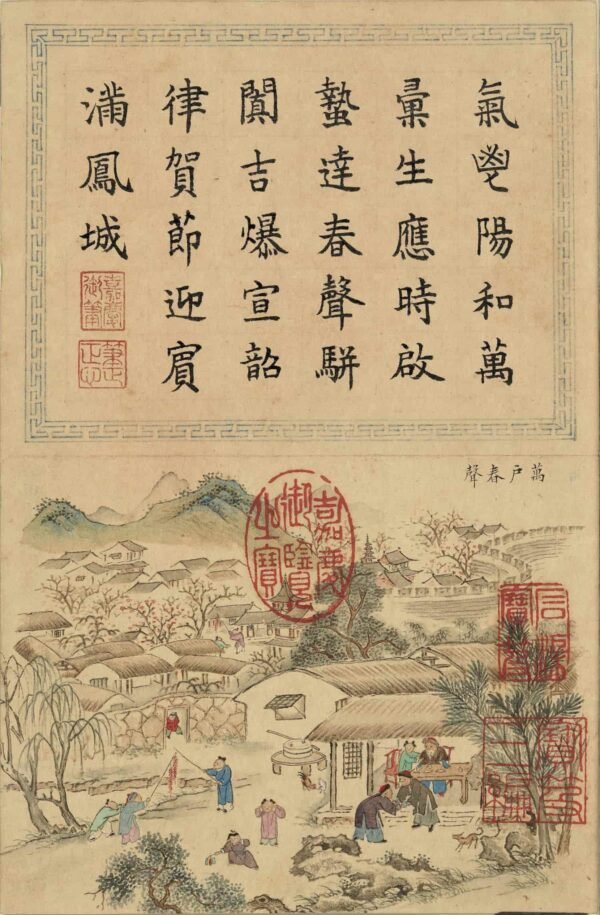 氣鬯陽和萬
彙生應時啟
蟄達春聲駢
闐吉爆宣韶
律賀節迎賓
滿鳳城
嘉慶
御筆
萬戶春聲
嘉慶
御覽
之寶
石渠
寶笈
寶笈
三編